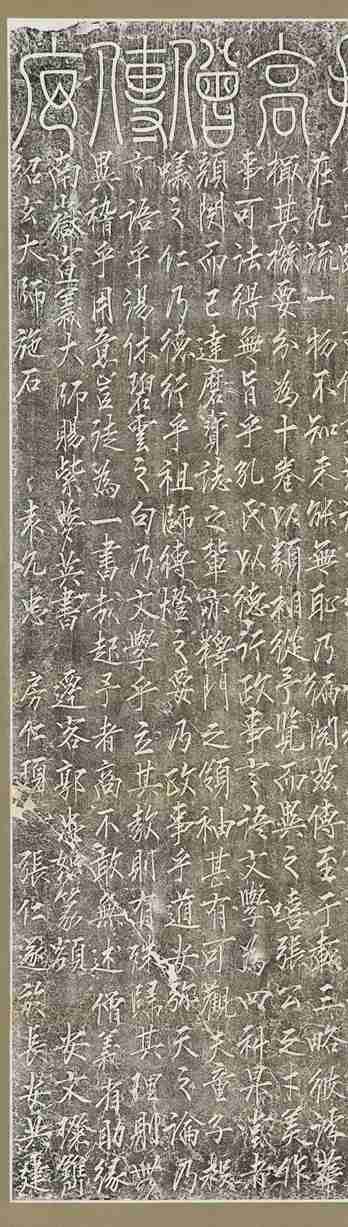 高僧傳序
在九流一物不知未能無恥乃徧閱茲傳至于載三略彼諸
其樞要分為十卷以類相從予覽而異之嘻張公之才美作
事可法得無旨乎孔氏以德行政事言語文學為四科果澄者
閱而已達磨寶誌之輩亦釋門之領袖甚有可觀夫童子
蟻之仁乃德行乎祖師傳燈之要乃政事乎道安弥天之論乃
言語乎湯休碧雲之句乃文學乎立其教則有殊歸其理則無
異稽乎用意豈徒為一書哉起予者高不敢無述 僧義省助緣
南嶽宣義大師賜紫夢英書 遷客郭忠恕篆額 安文璨鐫
紹玄大師施石 袁允忠 房仁 張仁遂 於長安共建